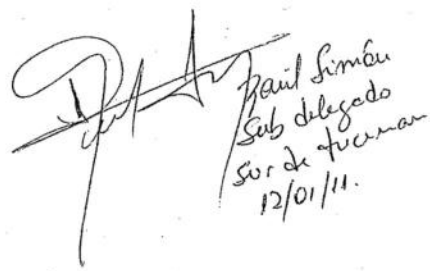 Raúl Simón
Sub delegado
Sur de tucuman
12/01/11.